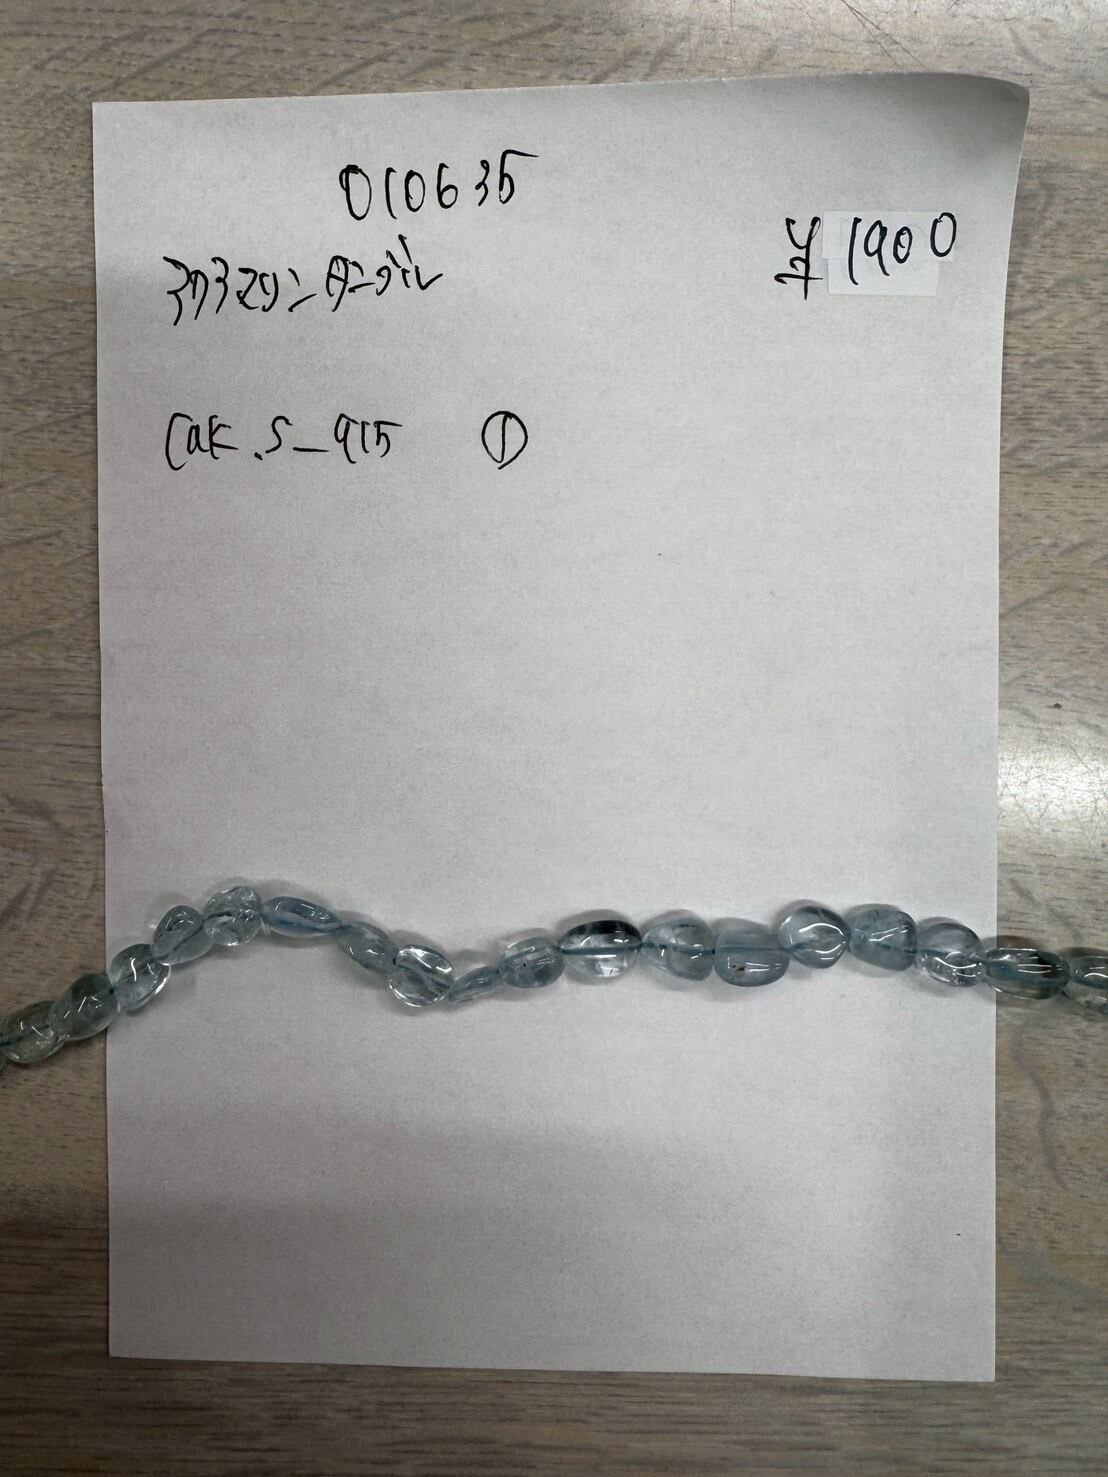 010635
¥1900
アクアマリン タンブル
Cak.S-915 ①